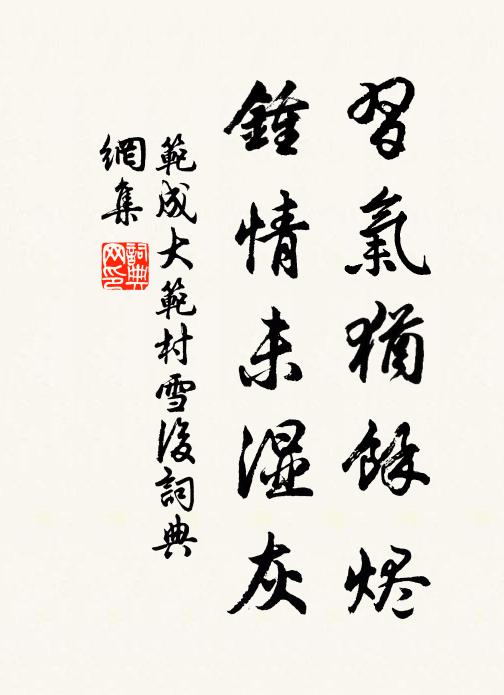 習氣猶餘烬
鍾情未濕灰
範成大範村雪後詞典
網集
詞典
网印